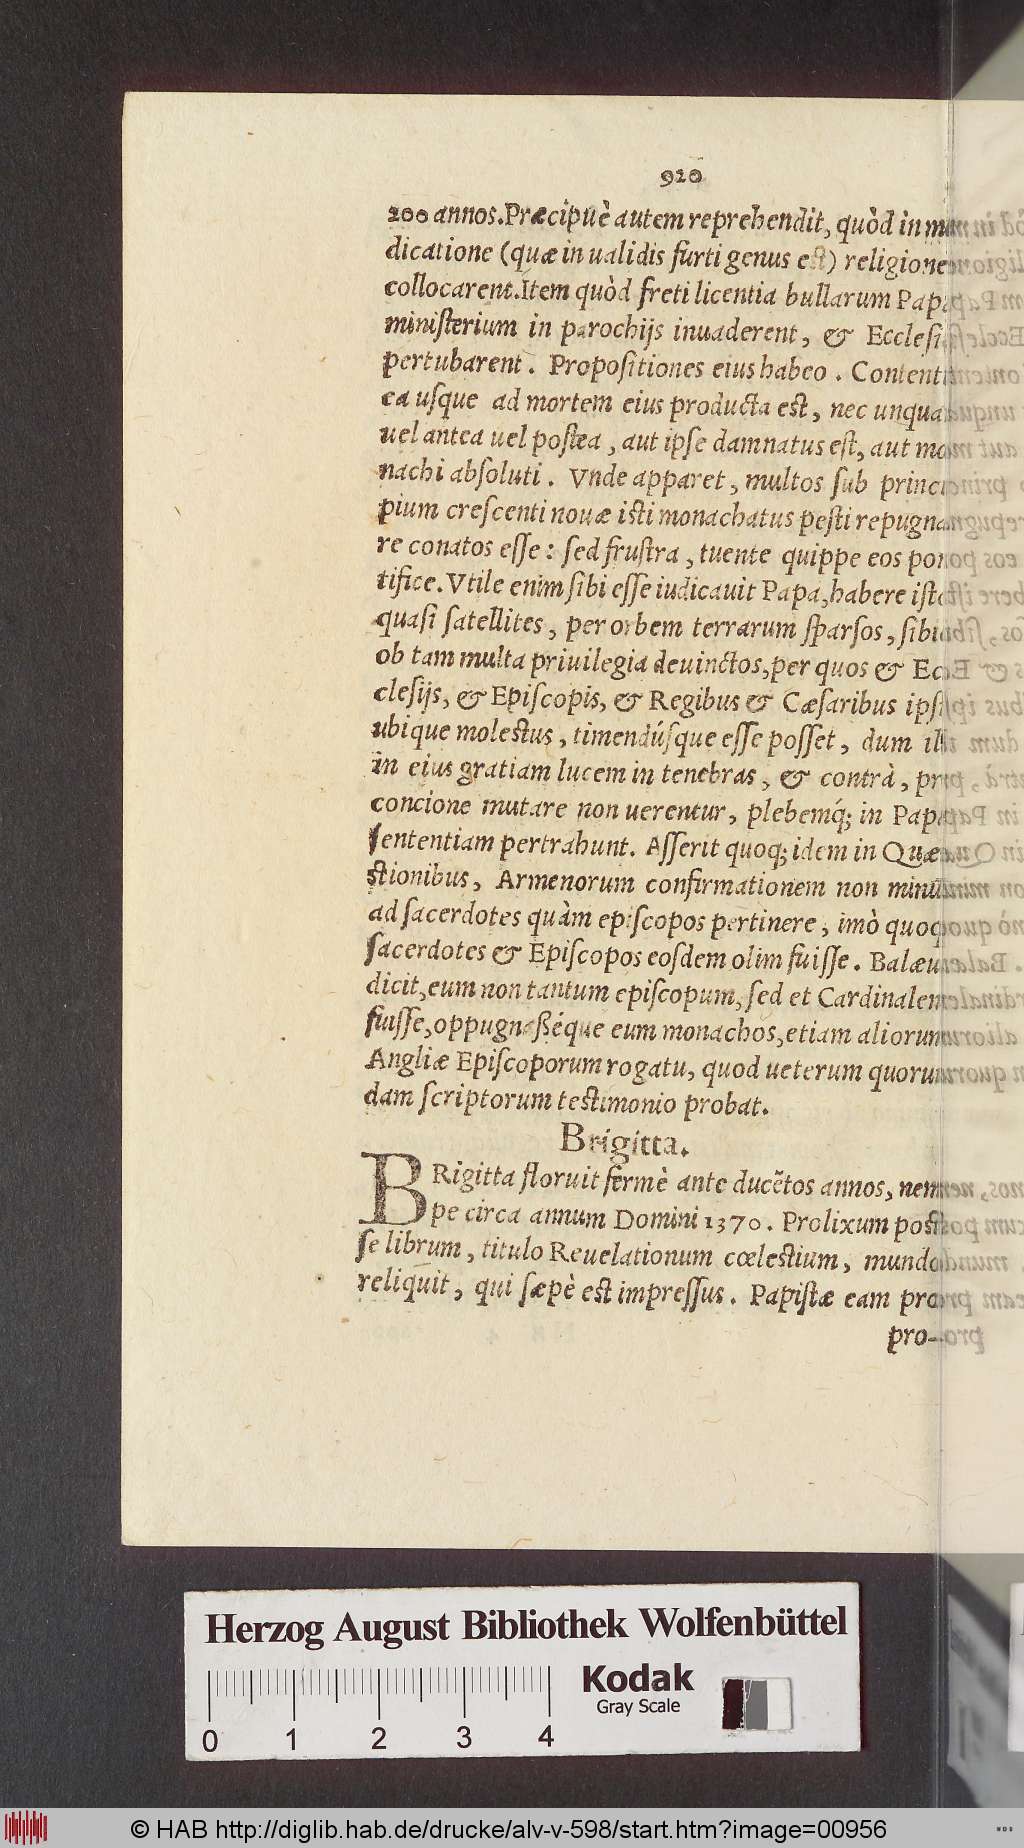 920
200 annos. Præcipuè autem reprehendit, quòd in men
dicatione (quæ in ualidis furti genus est) religionem
collocarent. Item quòd freti licentia bullarum Papæ
ministerium in parochijs inuaderent, & Ecclesias
pertubarent. Propositiones eius habeo. Contentio
ea usque ad mortem eius producta est, nec unquam
uel antea uel postea, aut ipse damnatus est, aut mo
nachi absoluti. Vnde apparet, multos sub princi
pium crescenti nouæ isti monachatus pesti repugna
re conatos esse: sed frustra, tuente quippe eos pon
tifice. Vtile enim sibi esse iudicauit Papa, habere istos
quasi satellites, per orbem terrarum sparsos, sibi
ob tam multa priuilegia deuinctos, per quos & Ec
clesijs, & Episcopis, & Regibus & Cæsaribus ipse
ubique molestus, timendúsque esse posset, dum illi
in eius gratiam lucem in tenebras, & contrà, pro
concione mutare non uerentur, plebemq́; in Papæ
sententiam pertrahunt. Asserit quoq; idem in Quæ
stionibus, Armenorum confirmationem non minus
ad sacerdotes quàm episcopos pertinere, imò quoq
sacerdotes & Episcopos eosdem olim fuisse. Balæus
dicit, eum non tantum episcopum, sed et Cardinalem
fuisse, oppugnaßéque eum monachos, etiam aliorum
Angliæ Episcoporum rogatu, quod ueterum quorun
dam scriptorum testimonio probat.
Brigitta.
BRigitta floruit fermè ante ducẽtos annos, nem
pe circa annum Domini 1370. Prolixum post
se librum, titulo Reuelationum cœlestium, mundo
reliquit, qui sæpè est impressus. Papistæ eam pro
pro-
Herzog August Bibliothek Wolfenbüttel
Kodak
Gray Scale
0 1 2 3 4
© HAB http://diglib.hab.de/drucke/alv-v-598/start.htm?image=00956